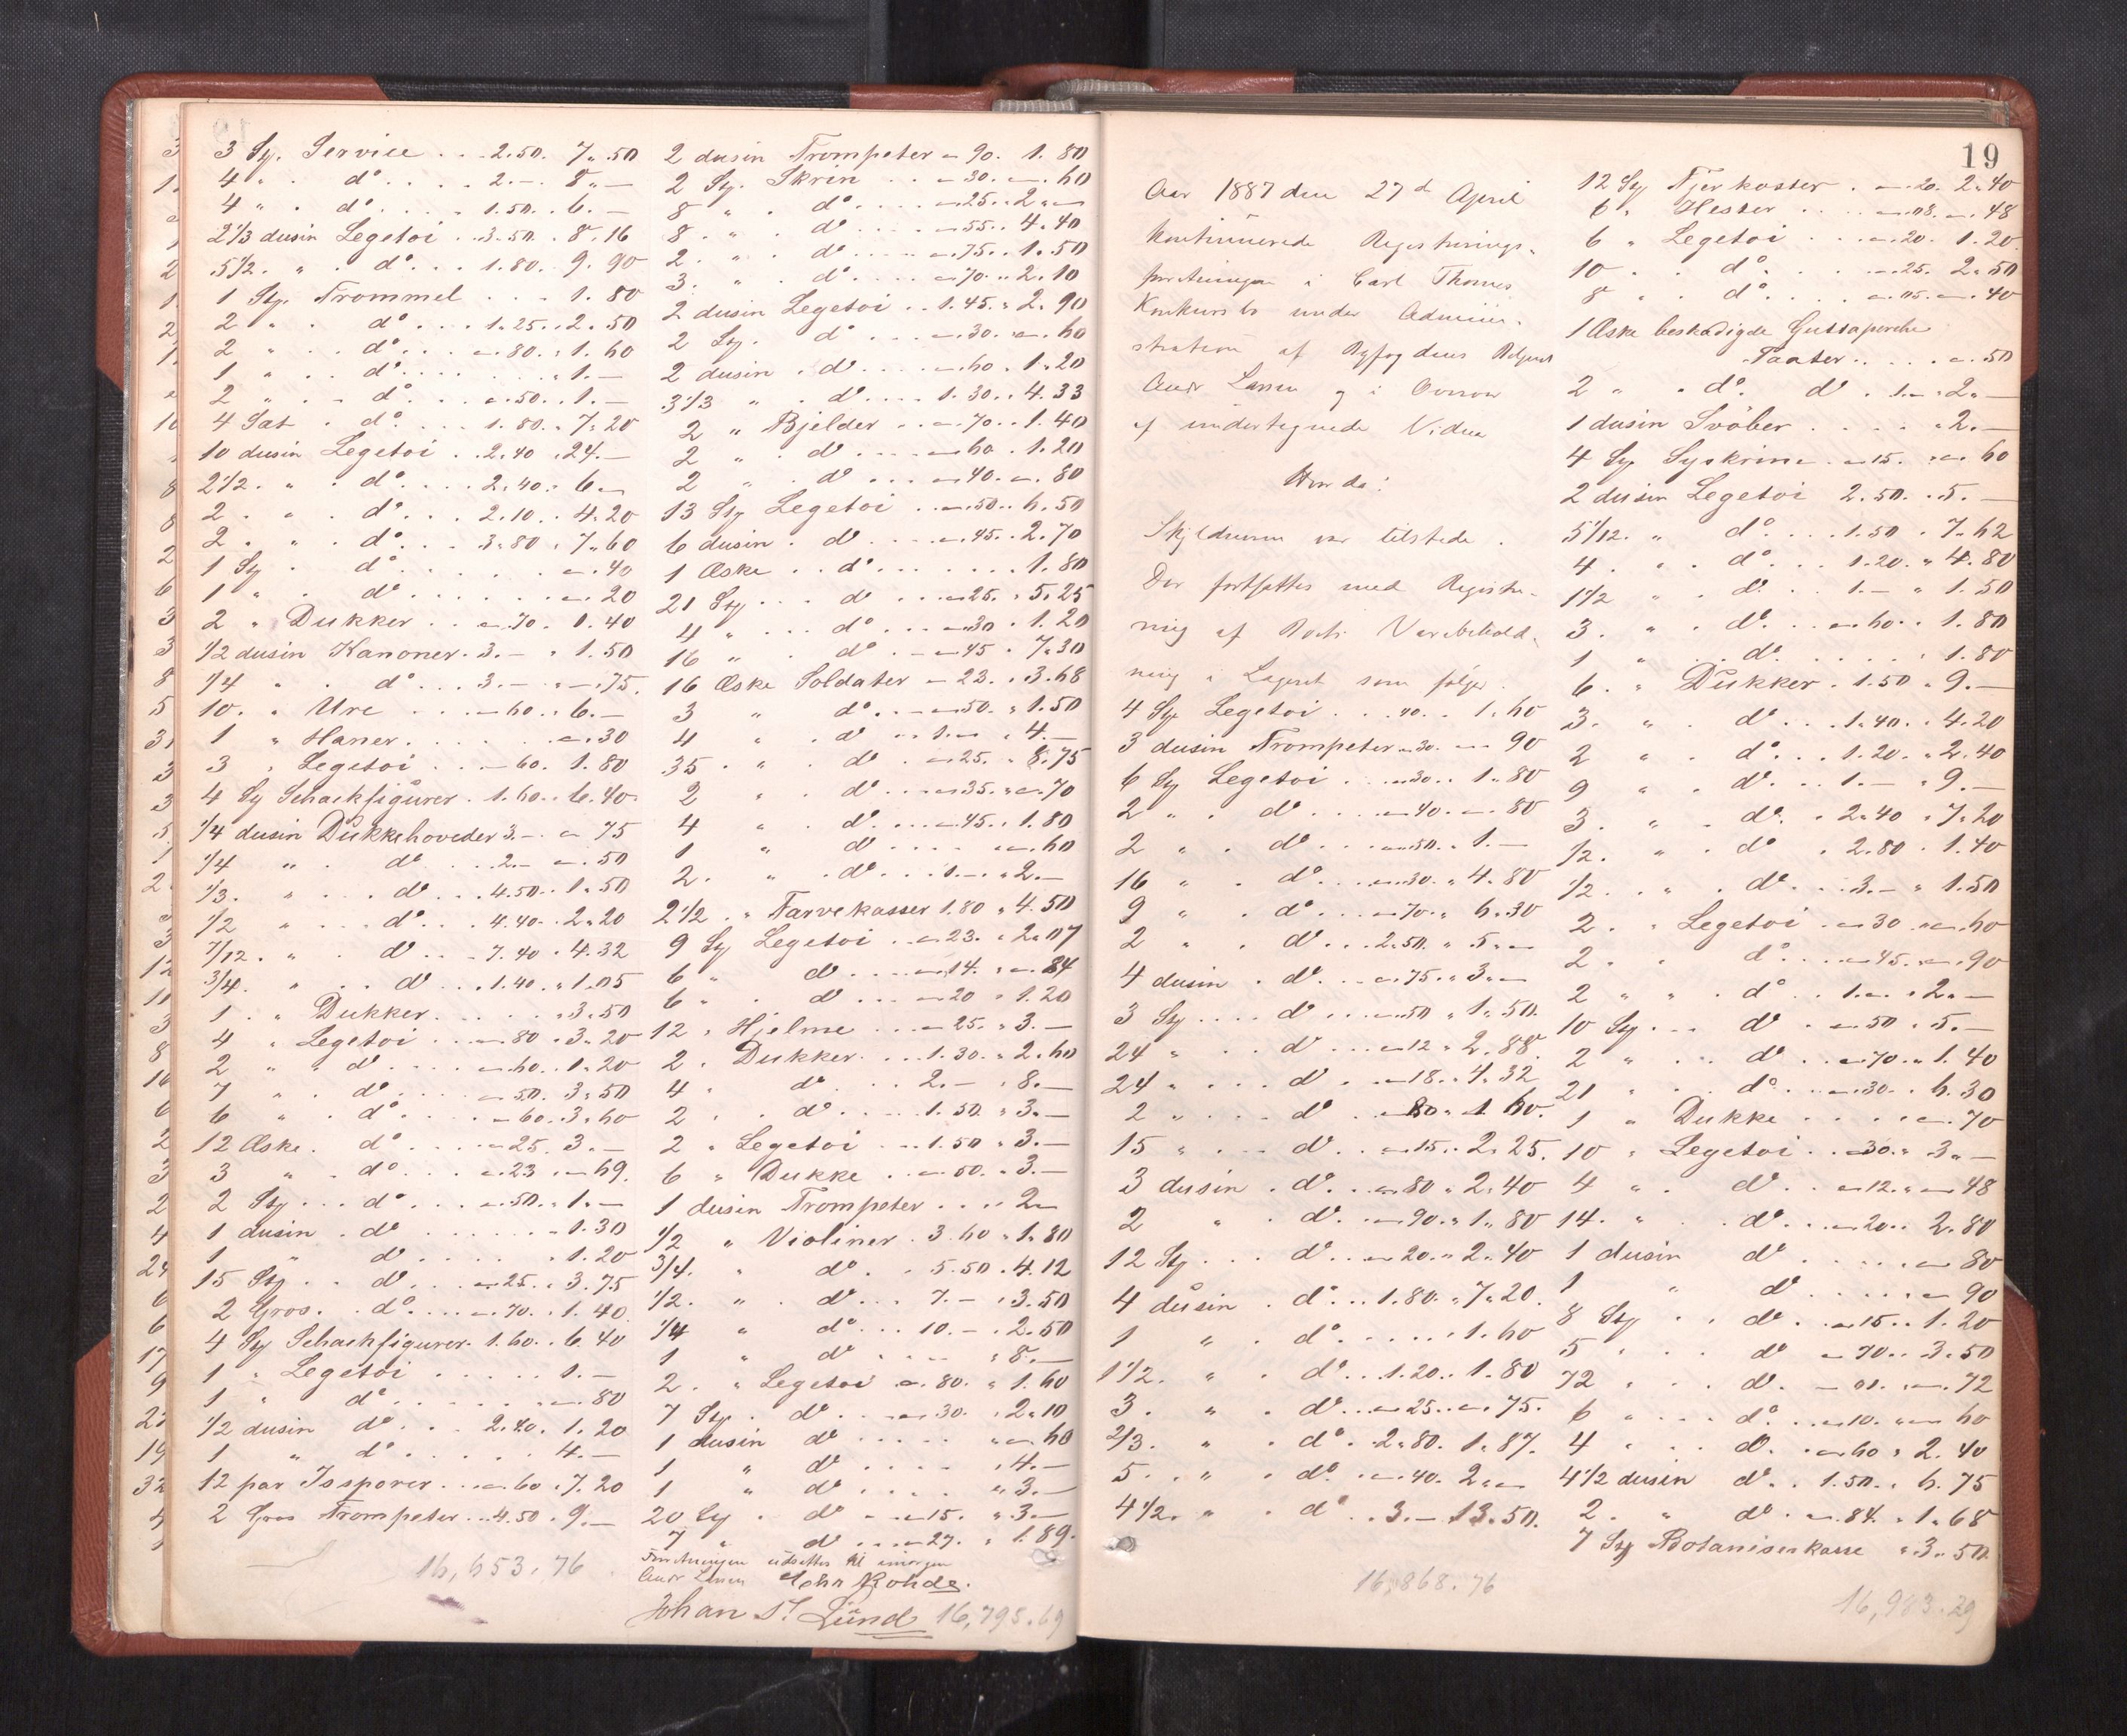 3 Stg. Service . . . 2.50. 7.. 50
4 " . d° . . . . 2.— . 8.. —
4 " . d° . . . . 1.50. . 6. —
2 1/3 dusin Legetöi . . 3.50. . 8. 16
5 1/2. " . d° . . . 1.80. . 9. 90
1 Stg. Trommel . . . 1. 80
2 " . d° . . . 1.25. . 2. 50
2 " . . d° . . . —.80. . 1. 60
1 " . . d° . . . . . 1.—
2 " . . d° . . . —.50. . 1.—
4 Sat . d° . . . 1.80. . 7. 20
10 dusin Legetöi . . 2.40 . 24.—
2 1/2. " . d° . . . 2.40. . 6.—
2 . " . d° . . . 2.10. . 4. 20
2 . " . d° . . . 3.80 . 7. 60
1 Stg . d° . . . . . —. 40
1 " . d° . . . . . —. 20
2 " Dukker . . —.70. 1. 40
1/2 dusin Kanoner. 3.— . 1. 50
1/4 " . d° . . . 3.— . —. 75.
10. " Ure . . . —60. . 6.—
1 " Haner . . . . . —. 30
3 " Legetöi . . . —60. 1. 80
4 Stg Schackfigurer . 1.60. . 6. 40.
1/4 dusin Dukkehoveder 3.— . — 75
1/4 " . d° . . . 2.— . —. 50
1/3. " . . d° . . . 4.50. . 1. 50
1/2 " . . d° . . . 4.40. . 2. 20
7/12. " . d° . . . 7.40 . 4. 32
3/4. " . . d° . . . 1.40. . 1. 05
1 . " Dukker . . . . . 3. 50
4 " Legetöi . . . —80 . 3. 20
2 " . d° . . . . —60. . 1. 20
7 " . d° . . . . —50. 3. 50
6 " . d° . . . . —60. 3. 60
12 Æske . d° . . . —25. 3.—
3 " . d° . . . —23 . — 69.
2 Stg . . . d° . . . —50. . 1.—
1 dusin . d° . . . . . 1. 30
1 " d° . . . . . 1. 20
15 Stg . . d° . . . —25. . 3. 75
2 Gros . . d° . . . —70. . 1. 40
4 Stg Schackfigurer. 1.60. . 6. 40
1 " Legetöi . . . . . 1.—
1 " d° . . . . . —. 80
1/2 dusin d° . . . 2.40. 1. 20
1 " d° . . . . . 4.—
12 par Issporer . . . —60 . 7. 20
2 Gros Trompeter . . 4.50 . 9.—
16,653.76
2 dusin Trompeter — 90. 1. 80
2 Stg. Skrin . . —30. —. 60
8 " . d° . . . . —25. . 2.—
8 " . d° . . . . —55. . 4. 40
2. " . d° . . . . —75. . 1. 50
3. " . d° . . . . —70. . 2. 10
2 dusin Legetöi . . 1.45. . 2. 90
2 Stg. d° . . . —30. —. 60
2 dusin . d° . . . . —60 . 1. 20
3 1/3 " . d° . . . . 1.30. . 4. 33
2 " Bjelder . . —70. . 1. 40
2 " . d° . . . . —60 . 1. 20
2 " . d° . . . —40. —. 80
13 Stg Legetöi . . —50. . 6. 50
6 dusin . d° . . . . —45. . 2. 70
1 Æske . . d° . . . . . 1. 80
21 Stg . . . d° . . . —25. . 5. 25
4 " . . . d° . . . —30 . 1. 20
16 " . d° . . . —45 . 7. 30
16 Æske Soldater — 23. . 3.68
3 " d° . . —50. . 1. 50
4 " . d° . . 1.— . 4.—
35 . " . d° . . —25. . 8. 75
2 " . d° . . —35. . —. 70
4 " . d° . . . —45. . 1. 80
1 " d° . . . . —. 60
2. " . d° . . . 1.— . 2.—
2 1/2 . " Farvekasser 1.80 . 4. 50
9 Stg Legetöi . . —23. . 2. 07
6 " d° . . . . —14. . —. 84
6 " . d° . . . —20 . 1. 20
12 " Hjelme . . . —25. . 3.—
2 " Dukker . . . 1.30. . 2. 60
4 " d° . . . 2.— . 8.—
2 . . d° . . . . 1.50 . 3.—
2 " Legetöi . . . 1.50 . 3.—
6 " Dukke . . . —50. . 3.—
1 dusin Trompeter . . . . 2.—
1/2 " Violiner . 3.60 . 1. 80
3/4. " d° . . 5.50 . 4. 12
1/2. " . d° . . . 7.— . 3. 50
1/4 " d° . . . 10.— . 2. 50
1 " d° . . . . 8.—
2. " Legetöi — 80. . 1. 60
7 Stg . d° . . . —30. . 2. 10
1 dusin d° . . . . . —. 60
1 " d° . . . . . 4.—
1 " d° . . . . . 3.—
20 Stg . d° . . —15. . 3.—
7 " . d° . . . —27. . 1. 89.
Forretningen udsættes til imorgen
Andr Larsen John Rohde.
Johan S. Lünd 16,795.69
19
Aar 1887 den 27d April
kontinueredes Registrerings-
forretningen i Carl Thomes
Konkursbo under Admini-
stration af Byfogdens
Andr Larsen og i Overvær
af undertegnede Vidner
Hvorda:
Skyldneren var tilstede.
Der fortsattes med Registre-
ring af Boets Varebehold-
ning i Lageret som følger.
4 Stg Legetöi . . . 40. . . 1. 60
3 dusin Trompeter —30. — 90
6 Stg Legetöi . . . —30. . 1. 80
2 " . d° . . . . —40. —. 80
2 " . d° . . . —50. . 1.—
16 " . d° . . . —30. . 4. 80
9 " . d° . . . —70. . 6. 30
2 " . d° . . . 2.50. . 5.—
4 dusin . d° . . . —75. . 3.—
3 Stg . . . . d° . . . —50 . 1. 50.
24 " . . d° . . . —12 . 2. 88.
24 " . . . d° . . —18. . 4. 32
2 " . . . d° . . —80 . 1. 60.
15 " . . . d° . . —15. . 2. 25.
3 dusin . d° . . —80 . 2. 40
2 " . d° . . —90. . 1. 80
12 Stg . . . d° . . —20. . 2. 40
4 dusin . d° . . 1.80. . 7. 20.
1 " . d° . . . . . 1. 60
1 1/2. " . d° . . 1.20. . 1. 80
3. " . d° . . —25. . —. 75.
2/3. " . d° . 2.80. 1. 87.
5. " . d° . . —40. 2.—
4 1/2. " . d° . . 3.— 13. 50.
16,868.76
12 Stg Tjerkoster . —20. 2. 40
6 " Hester . . . —08. —. 48
6 " Legetöi . . . —20. 1. 20.
10 . . d° . . . —25. 2. 50
8 " . d° . . . . —05. —. 40
1 Æske beskadigede Guttaperche
Taater . . . . —. 50
2 " . d°. d° . 1.— . 2.—
1 dusin Svöber . . . . . 2.—
4 Stg Syskrin . —15. . —. 60
2 dusin Legetöi 2.50. . 5.—
5 1/12. " d° . . . . 1.50 . 7. 62
4 . . . d° . . . 1.20. . 4. 80
1 1/2 " . d° . . 1.— . 1. 50
3. " . d° . . —60. . 1. 80
1 " . d° . . . . . 1. 80
6. " Dukker . 1.50 . 9.—
3. " . d° . . . 1.40. . 4. 20
2 " . d° . . . 1.20. . 2. 40
9 " . d° . . . 1.— . 9.—
3. " . d° . 2.40 . 7. 20
1/2. " . d° . 2.80 . 1. 40
1/2. . " . d° . . 3.— . 1. 50
2. " Legetöi . —30 . —. 60
2. . d° . . . —45. . —. 90
2 " " . d° . . 1.— . 2.—
10 Stg . . . d° . —50 . 5.—
2 " . . . d° . . —70. . 1. 40
21 " . . d° . . —30. . 6. 30
1 " Dukke . . . . —. 70
10 " Legetöi . . —30. . 3.—
4 " . d° . . —12. . —. 48
14. " . . d° . . . —20. . 2. 80
1 dusin d° . . . . . —. 80
1 " d° . . . . . —. 90
8 Stg . . d° . —15. . 1. 20
5 " . . d° — 70. . 3. 50
72 " . . d° . — 01. . —. 72
6 " . . . d° . . —10. . —. 60
4 " . . d° . . —60 . 2. 40
4 1/2 dusin d° . . 1.50. . 6. 75
2. " d° . —84. . 1. 68
7 Stg Botaniserkasse . 3. 50.
16,983.29